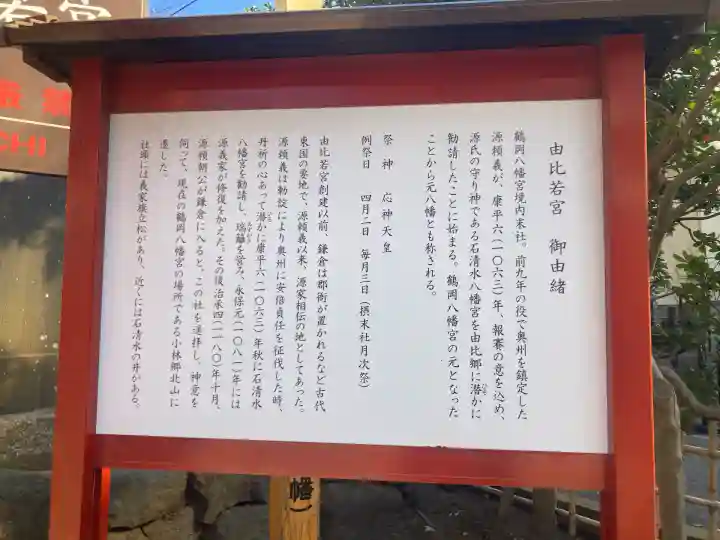 由比若宮　御由緒
鶴岡八幡宮境内末社。前九年の役で奥州を鎮定した
源頼義が、康平六(一〇六三)年、報賽の意を込め、
源氏の守り神である石清水八幡宮を由比郷に潜かに
勧請したことに始まる。鶴岡八幡宮の元となった
ことから元八幡とも称される。
祭　神　応神天皇
例祭日　四月二日　毎月三日(摂末社月次祭)
由比若宮創建以前、鎌倉は郡衙が置かれるなど古代
東国の要地で、源頼義以来、源家相伝の地としてあった。
源頼義は勅諚により奥州に安倍貞任を征伐した時、
丹祈の心あって潜かに康平六(一〇六三)年秋に石清水
八幡宮を勧請し、瑞籬を営み、永保元(一〇八一)年には
源義家が修復を加えた。その後治承四(一一八〇)年十月、
源頼朝公が鎌倉に入ると、この社を遥拝し、神意を
伺って、現在の鶴岡八幡宮の場所である小林郷北山に
遷した。
社頭には義家旗立松があり、近くには石清水の井がある。
若宮
CHI
幡)